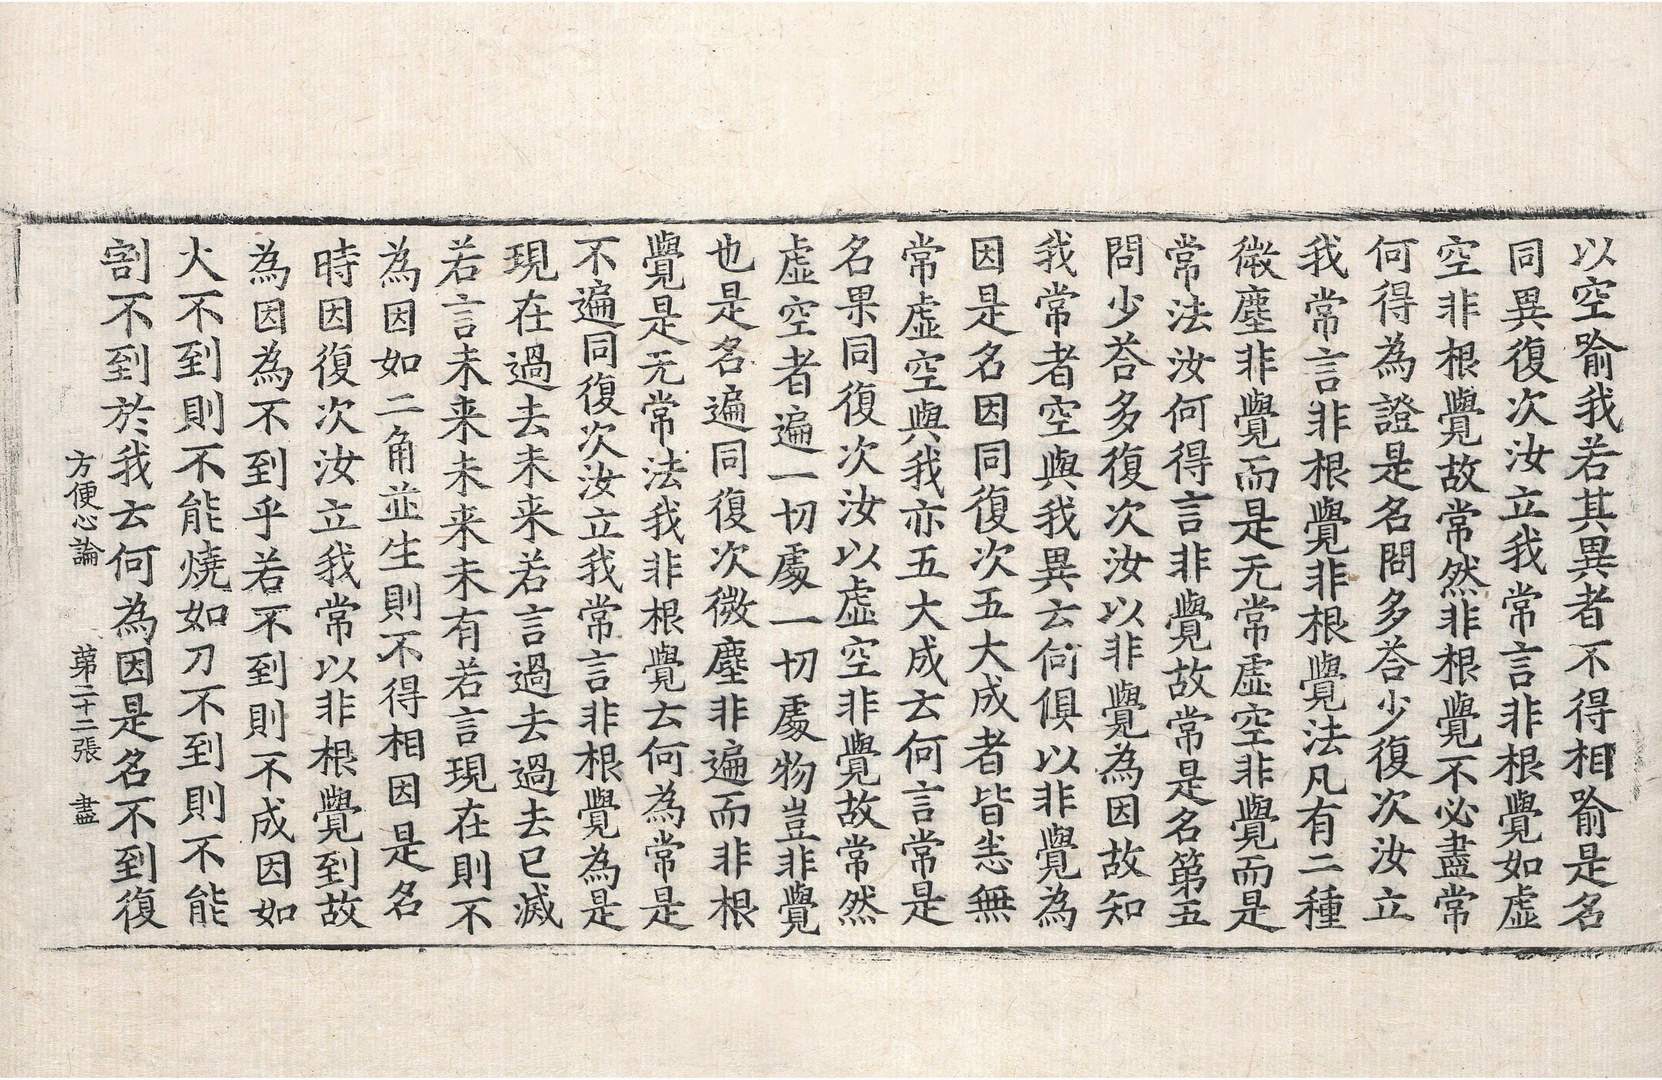 以空喻我若其異者不得相喻是名
同異復次汝立我常言非根覺如虛
空非根覺故常然非根覺不必盡常
何得為證是名問多荅少復次汝立
我常言非根覺非根覺法凡有二種
微塵非覺而是无常虛空非覺而是
常法汝何得言非覺故常是名第五
問少荅多復次汝以非覺為因故知
我常者空與我異云何俱以非覺為
因是名因同復次五大成者皆悉無
常虛空與我亦五大成云何言常是
名果同復次汝以虛空非覺故常然
虛空者遍一切處一切處物豈非覺
也是名遍同復次微塵非遍而非根
覺是无常法我非根覺云何為常是
不遍同復次汝立我常言非根覺為是
現在過去未来若言過去過去已滅
若言未来未来未有若言現在則不
為因如二角並生則不得相因是名
時因復次汝立我常以非根覺到故
為因為不到乎若不不到則不成因如
火不到則不能燒如刀不到則不能
割不到於我云何為因是名不到復
方便心論 第二十二張 盡